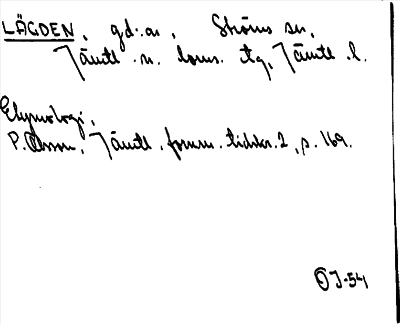 LÄGDEN, gd:ar, Ströms sn,
Jämtl. n. doms. tg, Jämtl. l.
Etymologi,
P. Olsson, Jämtl. fornm. tidskr. 2, s. 169.
OJ-54